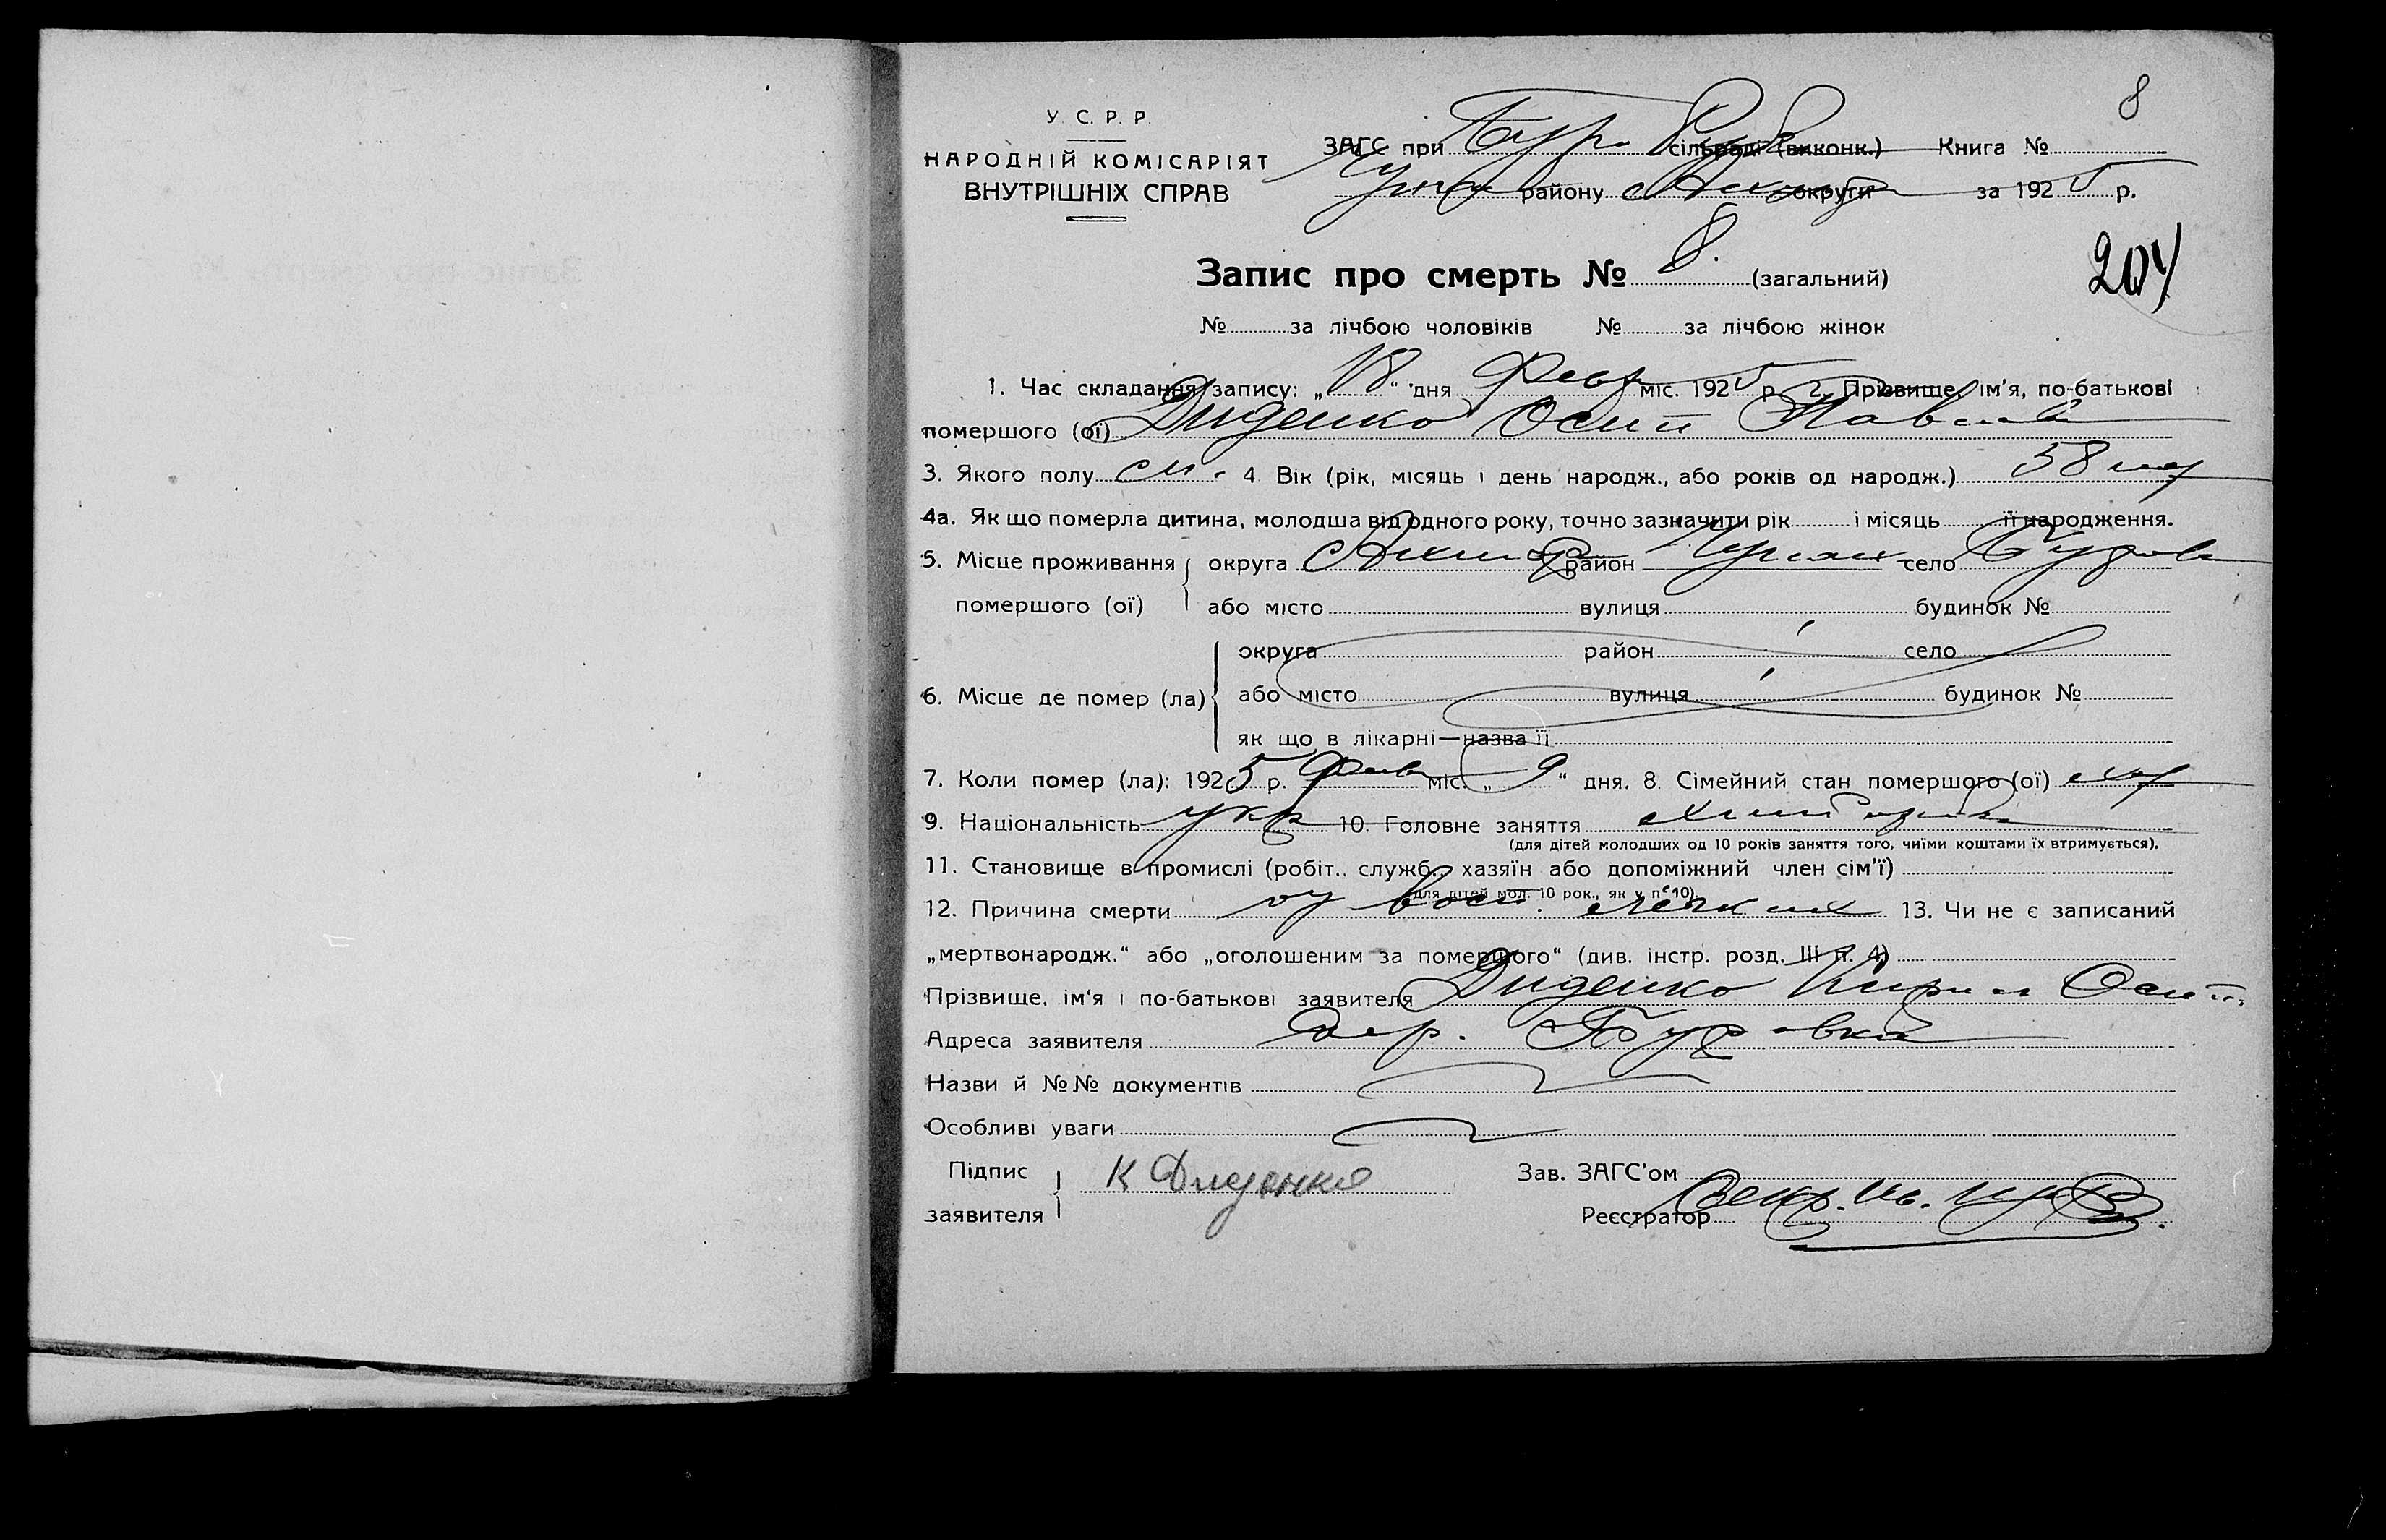 8
У. С. Р. Р.
НАРОДНІЙ КОМІСАРІЯТ
ВНУТРІШНІХ СПРАВ
ЗАГС при сільраді (виконк.) Книга №
району округи за 1925 р.
Запис про смерть № 8. (загальний)
204
№ за лічбою чоловіків № за лічбою жінок
1. Час складання запису: „18“ дня Февр міс. 1925 р. 2. Прізвище, ім'я, по-батькові
помершого (ої) Диденко Осип Павлов
3. Якого полу м. 4. Вік (рік, місяць і день народж., або років од народж.) 58 лет
4а. Як що померла дитина, молодша від одного року, точно зазначити рік і місяць її народження.
5. Місце проживання округа район село
помершого (ої) або місто вулиця будинок №
округа район село
6. Місце де помер (ла) або місто вулиця будинок №
як що в лікарні—назва її
7. Коли помер (ла): 1925 р. Фев міс. „9“ дня. 8. Сімейний стан помершого (ої)
9. Національність укр 10. Головне заняття хлибороб
(для дітей молодших од 10 років заняття того, чиїми коштами їх втримується).
11. Становище в промислі (робіт., служб., хазяїн або допоміжний член сім'ї)
(для дітей мол. 10 рок., як у п. 10)
12. Причина смерти от восп. легких 13. Чи не є записаний
„мертвонародж.“ або „оголошеним за помершого“ (див. інстр. розд. III п. 4)
Прізвище, ім'я і по-батькові заявителя Диденко Кирил Осип
Адреса заявителя дер.
Назви й №№ документів
Особливі уваги
Підпис заявителя К Диденко
Зав. ЗАГС'ом
Реєстратор Секр.